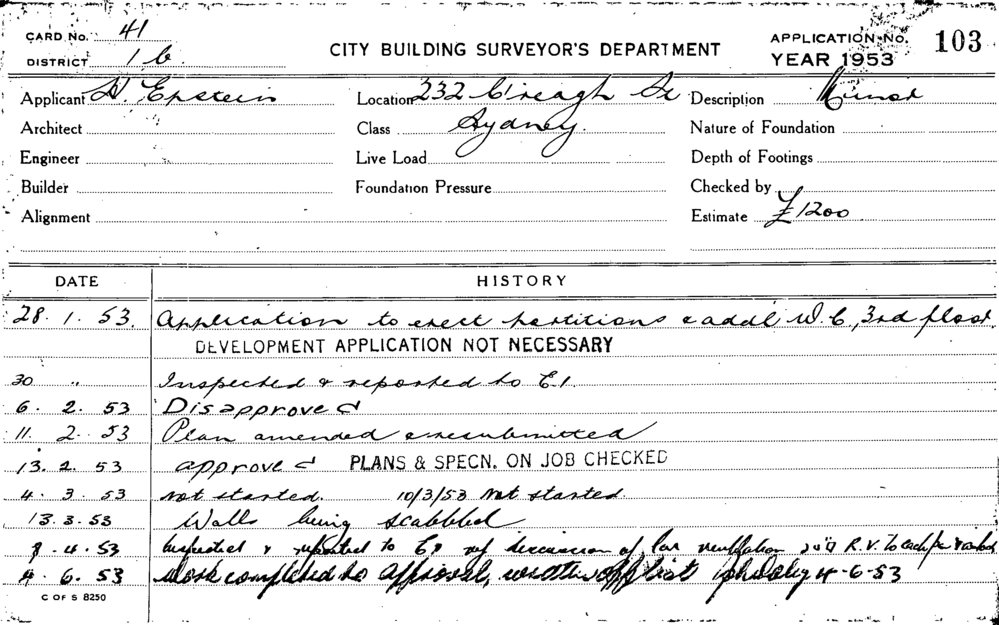 CARD No. 41
DISTRICT 1b
CITY BUILDING SURVEYOR'S DEPARTMENT
APPLICATION No. 103
YEAR 1953
Applicant H. Epstein Location 232 C'reagh St Description Minor
Architect Class Sydney. Nature of Foundation
Engineer Live Load Depth of Footings
Builder Foundation Pressure Checked by
Alignment Estimate £1200
DATE HISTORY
28. 1. 53. Application to erect partitions & addl W.C., 3rd floor.
DEVELOPMENT APPLICATION NOT NECESSARY
30 " Inspected & reported to C.I.
6. 2. 53 Disapproved
11. 2. 53 Plan amended & resubmitted
13. 2. 53 approved PLANS & SPECN. ON JOB CHECKED
4. 3. 53 not started. 10/3/53 Not started.
13. 3. 53 Walls being scabbled
8. 4. 53 Inspected & reported to of R.V. to each
4. 6. 53 Work completed to approval, written off 4-6-53
C OF S 8250